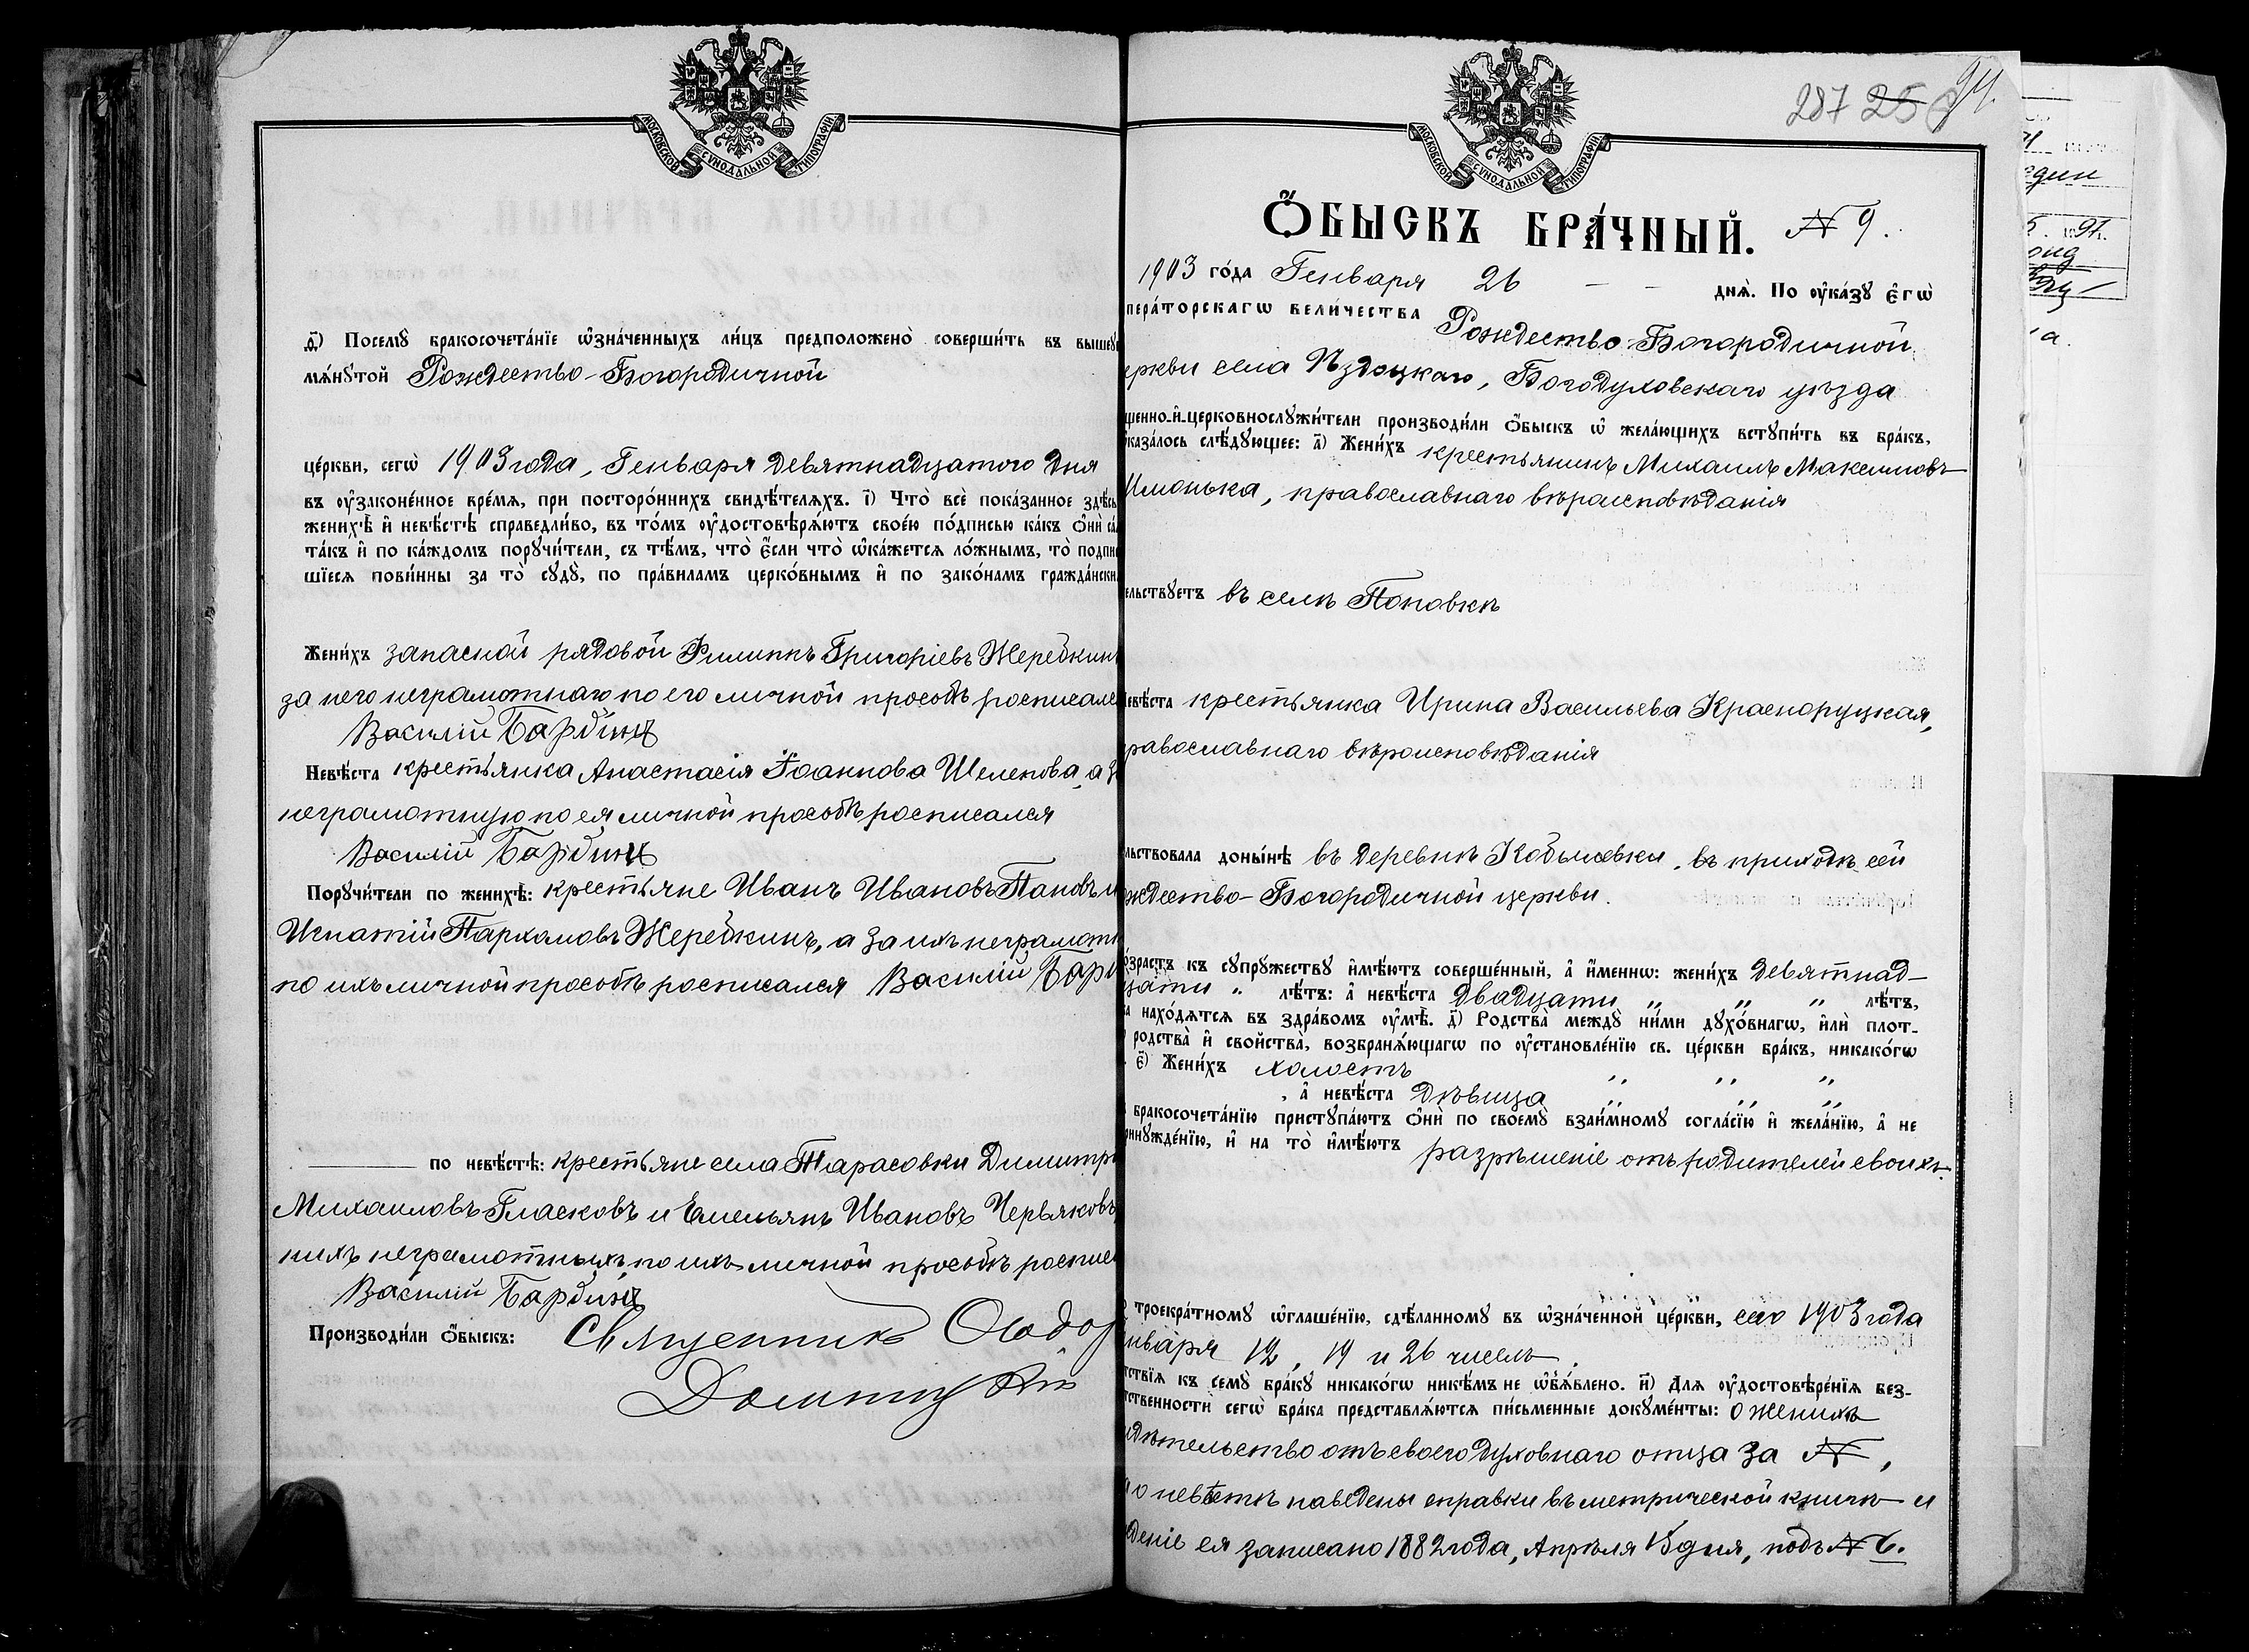 МОСКОВСКОЙ СУНОДАЛЬНОЙ ТИПОГРАФІИ
ѳ҃) Послѣ бракосочета́нїе ѡ҆зна́ченныхъ ли́цъ предположено̀ соверши́ть въ выше
мѧ́нꙋтой Рождество-Богородичной
це́ркви, сегѡ̀ 1903 года, Генваря девятнадцатого дня
въ ᲂу҆законе́нное вре́мѧ, при посторо́ннихъ свидѣ́телѧхъ. і҃) Что̀ всѐ пока́занное здѣсь
женихѣ̀ и҆ невѣ́стѣ справедли́во, въ то́мъ ᲂу҆достовѣрѧ́ютъ свое́ю по́дписью ка́къ ѻ҆нѝ са
та́къ и҆ по ка́ждомъ порꙋчи́тели, съ тѣ́мъ, что̀ є҆́сли что̀ ѡ҆ка́жетсѧ ло́жнымъ, то̀ подпи
шїесѧ пови́нны за то̀ сꙋдꙋ̀, по пра́виламъ церко́внымъ и҆ по зако́намъ гражда́нски
Жени́хъ запасной рядовой Филиппъ Григоріевъ Жеребкинъ
за него неграмотнаго по его личной просьбѣ росписалс
Василій Бардинъ
Невѣ́ста крестьянка Анастасія Іоаннова Шелепова, а з
неграмотную по ея личной просьбѣ росписался
Василій Бардинъ
Порꙋчи́тели по женихѣ̀: крестьяне Иванъ Ивановъ Пановъ и
Игнатій Пархомовъ Жеребкинъ, а за ихъ неграмотн
по ихъ личной просьбѣ росписался Василій Бард
по невѣ́стѣ: крестьяне села Тарасовки Димитрі
Михаиловъ Гласковъ и Емельянъ Ивановъ Червяковъ
нихъ неграмотныхъ по ихъ личной просьбѣ роспис
Василій Бардинъ
Производи́ли ѻ҆́быскъ: Священникъ Ѳеодор
МОСКОВСКОЙ СУНОДАЛЬНОЙ ТИПОГРАФІИ
287 25 94.
Ѻ҆́БЫСКЪ БРА́ЧНЫЙ. № 9.
1903 го́да Генваря 26 днѧ̀. По ᲂу҆ка́зꙋ є҆гѡ̀
пера́торскагѡ вели́чества Рождество-Богородичной
еркви села Пздоцкаго, Богодуховскаго уѣзда
щенно-и҆-церковнослꙋжи́тели производи́ли ѻ҆́быскъ ѡ҆ жела́ющихъ встꙋпи́ть въ бра́къ,
каза́лось слѣ́дꙋющее: а҃) Жени́хъ крестьянинъ Михаилъ Максимовъ
Имонька, православнаго вѣроисповѣданія
ельствꙋетъ въ селѣ Поповкѣ
евѣ́ста крестьянка Ирина Васильева Красноруцкая,
равославнаго вѣроисповѣданія
льствовала доны́нѣ въ деревнѣ Кобылевки, въ приходѣ сей
ждество-Богородичной церкви.
о́зрастъ къ сꙋпрꙋжествꙋ и҆мѣ́ютъ соверше́нный, а҆ и҆́меннѡ: жени́хъ девятнад-
цати " лѣ́тъ: а҆ невѣ́ста двадцати " " " лѣ́тъ,
а нахо́дѧтсѧ въ здра́вомъ ᲂу҆мѣ̀. д҃) Родства̀ междꙋ̀ ни́ми дꙋхо́внагѡ, и҆лѝ плот-
родства̀ и҆ свойства̀, возбранѧ́ющагѡ по ᲂу҆становле́нїю св. це́ркви бра́къ, никако́гѡ
є҃) Жени́хъ холостъ " " "
, а҆ невѣ́ста дѣвица " "
бракосочета́нїю пристꙋпа́ютъ ѻ҆нѝ по своемꙋ̀ взаи́мномꙋ согла́сїю и҆ жела́нїю, а҆ не
ринꙋжде́нїю, и҆ на то̀ и҆мѣ́ютъ разрѣшеніе отъ родителей своихъ.
троекра́тномꙋ ѡ҆глаше́нїю, сдѣ́ланномꙋ въ ѡ҆зна́ченной це́ркви, сего 1903 года
нваря 12, 19 и 26 числъ
тствїѧ къ семꙋ̀ бра́кꙋ никако́гѡ никѣ́мъ не ѡ҆б̾ѧ́влено. и҃) Для ᲂу҆достовѣре́нїѧ без-
тственности сегѡ̀ бра́ка представлѧ́ютсѧ пи́сьменные докꙋме́нты: о женихѣ
идѣтельство отъ своего духовнаго отца за №,
о невѣстѣ наведены справки въ метрической книгѣ и
деніе ея записано 1882 года, Апрѣля 15 дня, подъ № 6.